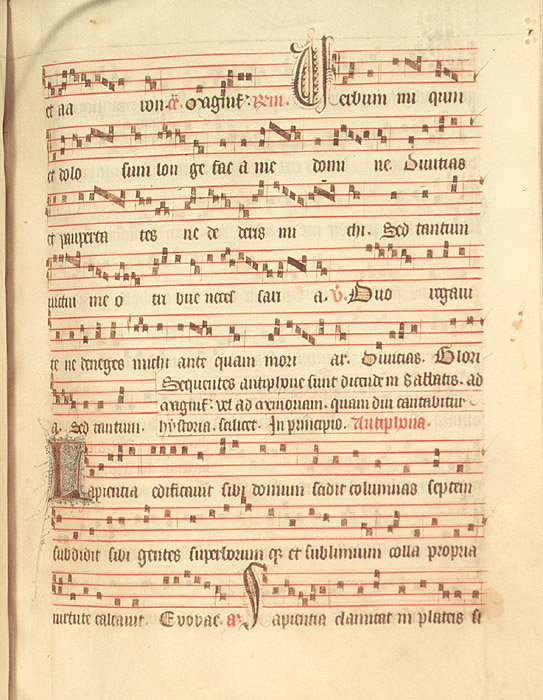 et aa uon. Magnif: Rem. Uerbum mi quin
et dolo sum lon ge fac a me domi ne. Diuitias
et pauperta tes ne de deris mi chi. Sed tantum
uictui me o tri bue neces sari a. V. Duo rogaui
te ne deneges michi ante quam mori ar. Diuitias. Glori
Sequentes antiphone sunt dicende in sabbatis. ad
magnif: vel ad memoriam. quam diu cantabitur
a. Sed tantum. hystoria. scilicet. In principio. Antiphona.
Sapientia edificauit sibi domum scidit columnas septem
subdidit sibi gentes superborum et sublimium colla propria
uirtute calcauit. Euouae. a: Sapientia clamitat in plateis si